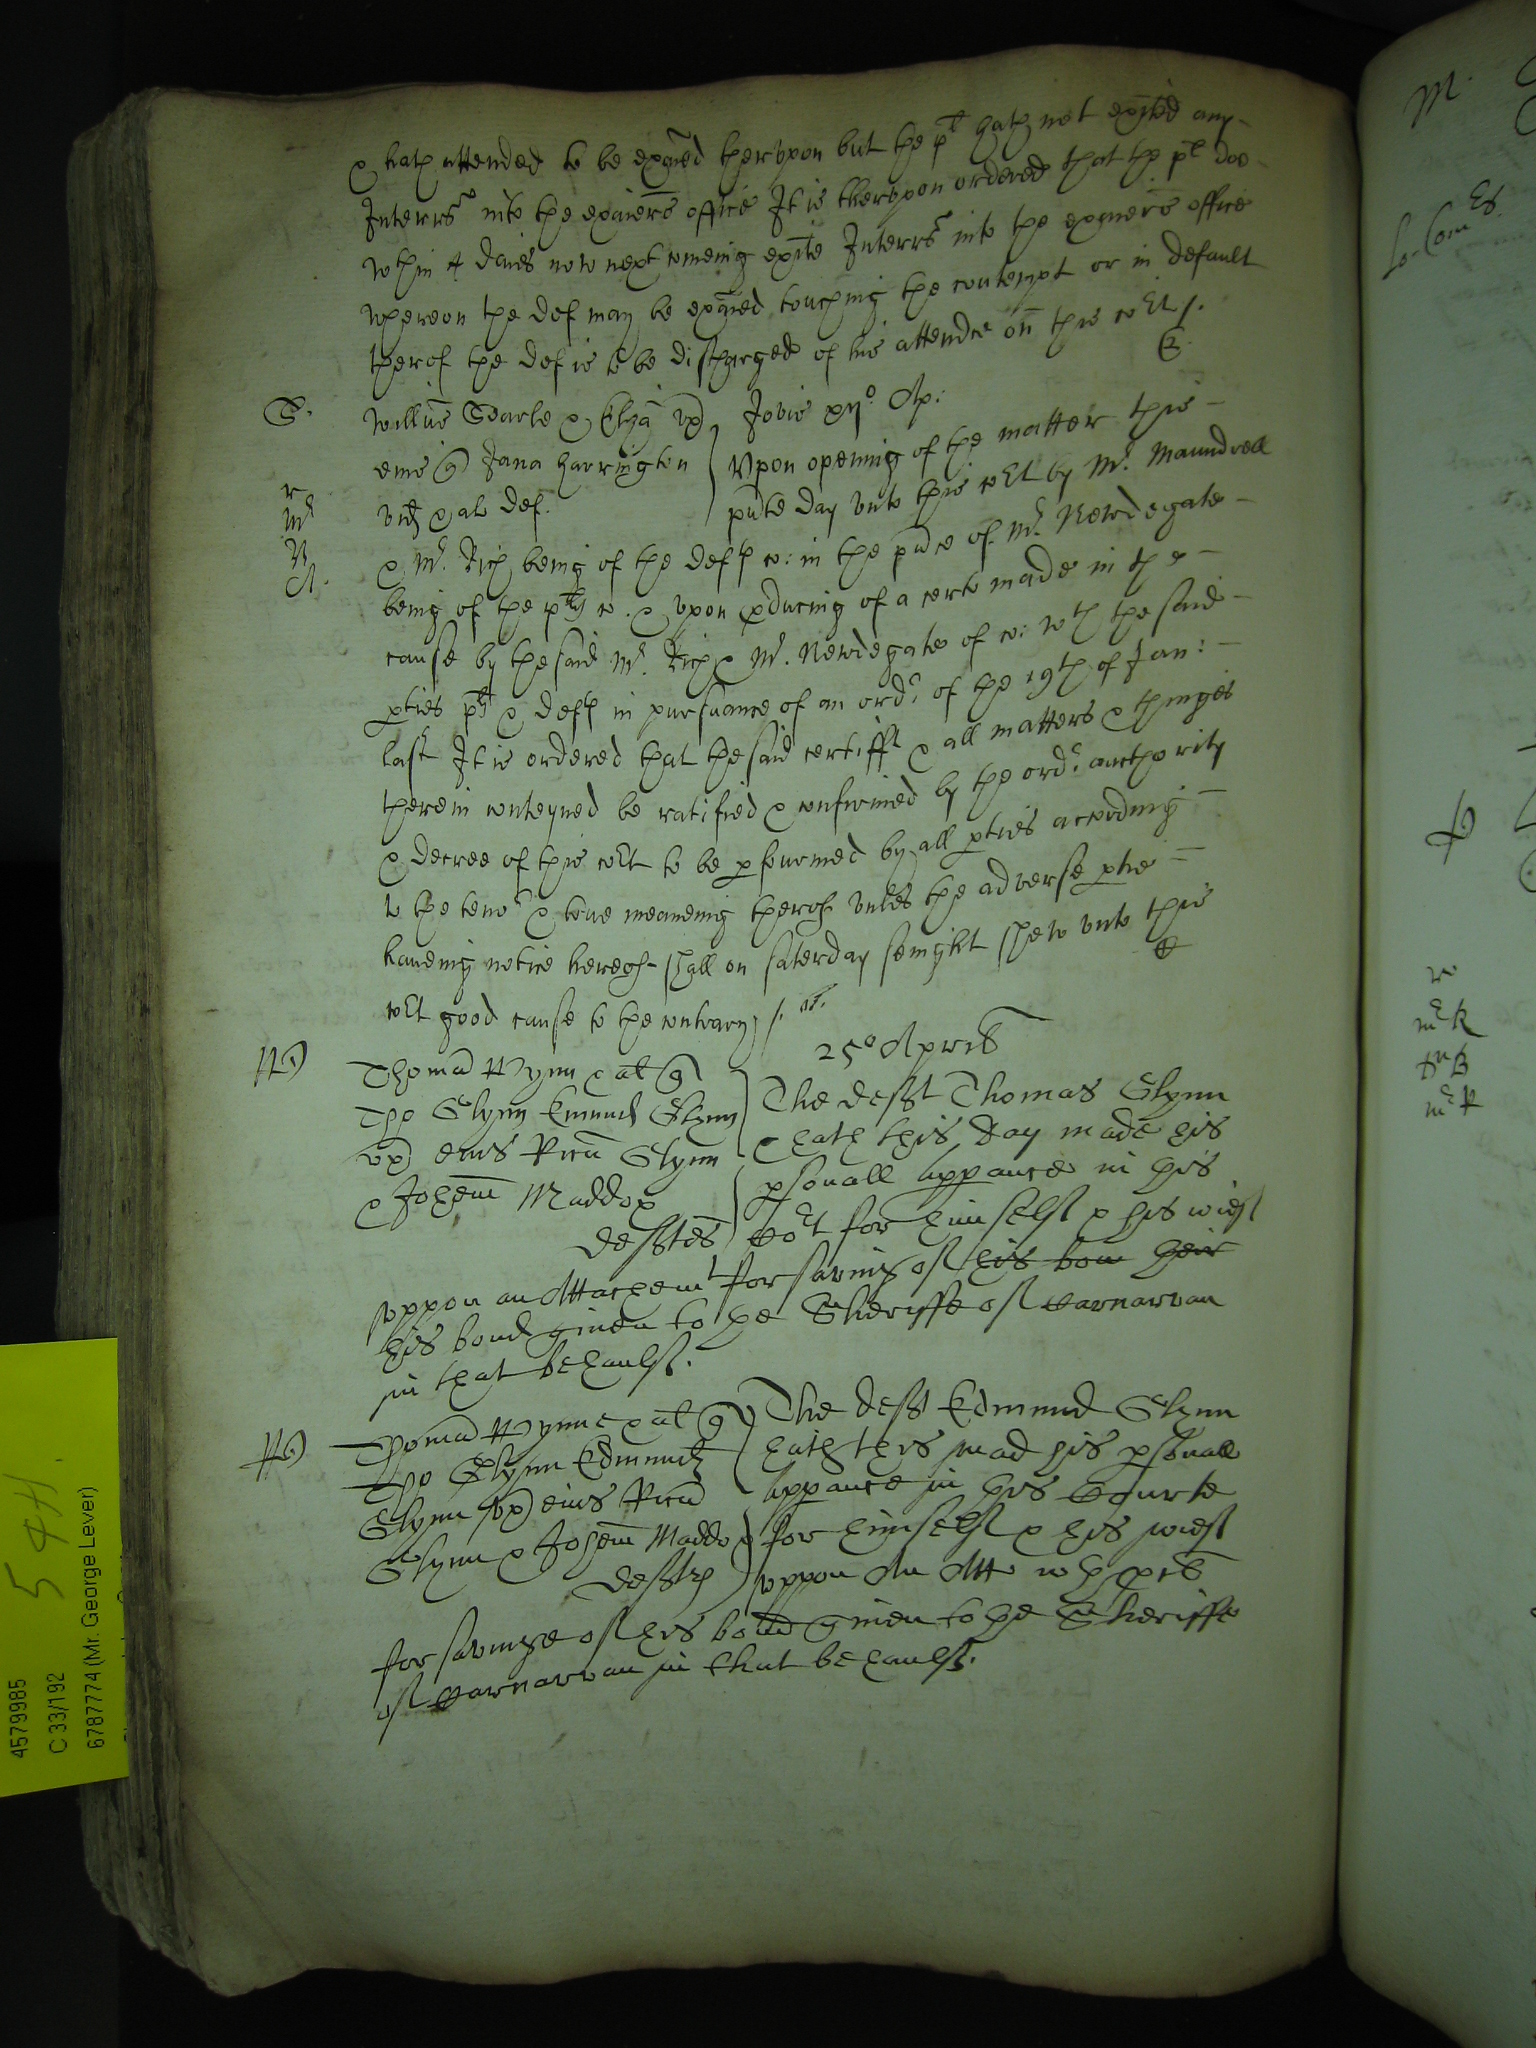 & hath attended to be exaied therupon but the pl hath not exited any
Interrs into the exaiers office It is therupon ordered that the pl doe
wthin 4 daies now next comeing exite Interrs into the exaiers office
whereon the def may be exaied touching the contempt or in default
therof the def is to be discharged of his attendce on this cort /.
S.
Willus Searle & Eliza ux
eius Jana Harrington
vid & al def.
Jovis Ap:
Upon opening of the matter this
pnte day unto this cort by Mr. Maundrell
& Mr. Rich being of the defts co: in the pnce of Mr. Newdegate
being of the plts co. & upon pducing of a certe made in the
cause by the said Mr. Rich & Mr. Newdegate of co: wth the said
pties plt & deft in pursuance of an ordr of the 19th of Jan:
last It is ordered that the said certifft & all matters & thinges
therein conteyned be ratified & confirmed by the ordr: aucthority
& decree of this cort to be pfourmed by all pties according
to the tenor & true meaneing therof unles the adverse ptie
haveing notice hereof shall on Saterday senight shew unto this
cort good cause to the contrary /.
25o Aprilis
Thomas Wynn & al
Tho Glynn Edmund Glynn
ux eius Ricu Glynn
& Johem Maddox
deftes
The deft Thomas Glynn
hath this day made his
psonall appance in this
cort for himself & his wief
uppon an Attachemt for saving of his bon heir
his bond given to the Sheriffe of Carnarvan
in that behaulf.
Thomas Wynne & al
Tho Glynn Edmund
Glynn ux eius Ricu
Glynn & Johem Maddox
deftes
The deft Edmund Glynn
hath this mad his psonall
appance in this Courte
for himself & his wief
uppon An Att
for savinge of his bond given to the Sheriffe
of Carnarvan in that behaulf.
M.
mr R
mr P
54H.
4579985
C 33/192
6787774 (Mr. George Lever)